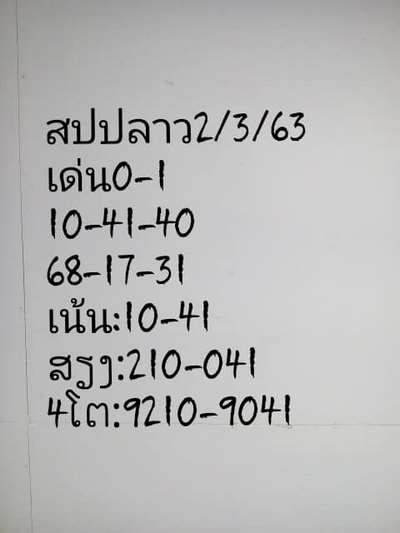 สปปลาว2/3/63
เด่น0-1
10-41-40
68-17-31
เน้น:10-41
สรุง:210-041
4โต:9210-9041